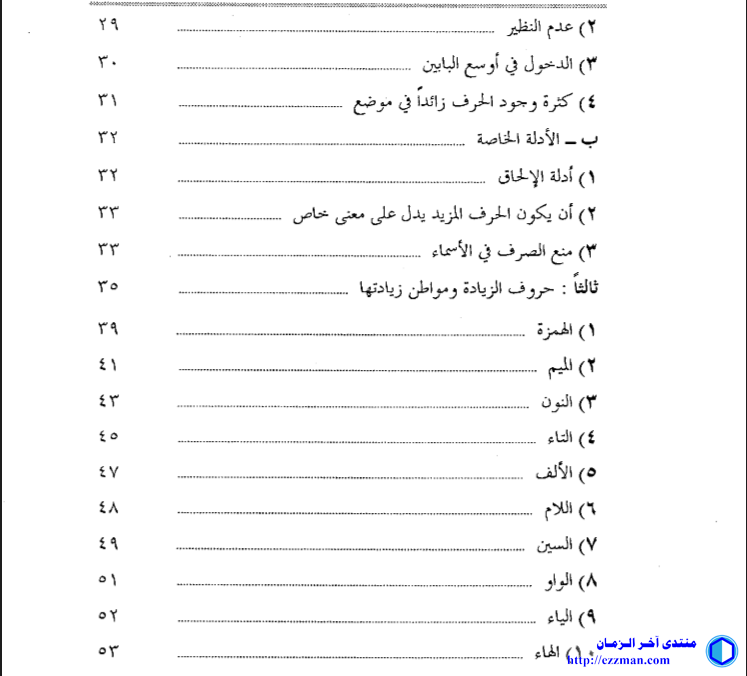 ٢) عدم النظير ........ ٢٩
٣) الدخول في أوسع البابين ........ ٣٠
٤) كثرة وجود الحرف زائداً في موضع ........ ٣١
ب ـ الأدلة الخاصة ........ ٣٢
١) أدلة الإلحاق ........ ٣٢
٢) أن يكون الحرف المزيد يدل على معنى خاص ........ ٣٣
٣) منع الصرف في الأسماء ........ ٣٣
ثالثاً : حروف الزيادة ومواطن زيادتها ........ ٣٥
١) الهمزة ........ ٣٩
٢) الميم ........ ٤١
٣) النون ........ ٤٣
٤) التاء ........ ٤٥
٥) الألف ........ ٤٧
٦) اللام ........ ٤٨
٧) السين ........ ٤٩
٨) الواو ........ ٥١
٩) الياء ........ ٥٢
١٠) الهاء ........ ٥٣
منتدى آخر الزمان
http://ezzman.com